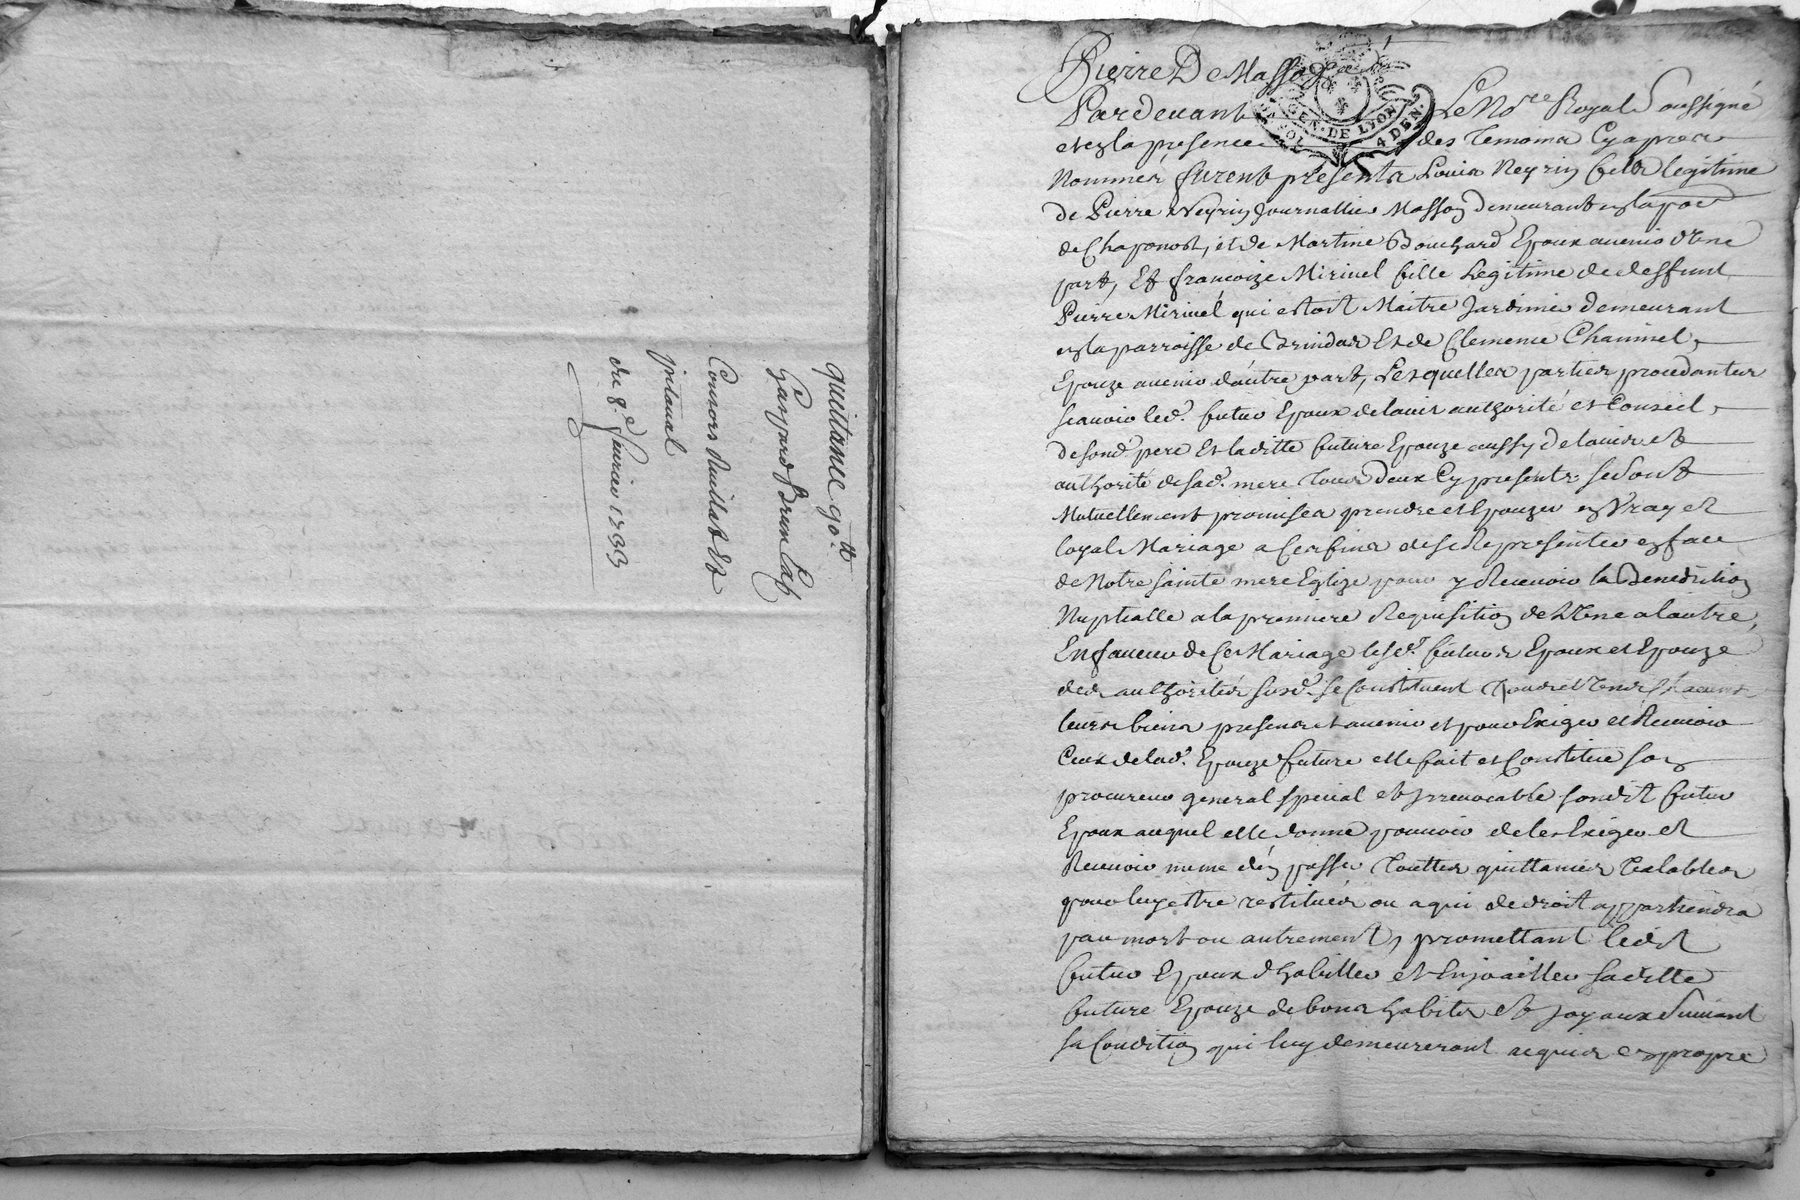 quittance 90.tt
Gaspard Brun Lab
Consors Ruillat Et
du 8.e feurier 1733
Pierre De Masso
GEN. DE LYON
4 DEN.
Pardeuant Le No.re Royal Soussigné
et en la presence des Temoins Cyapres
Nommes, furent presents Louis Neyrin fils legitime
de Pierre Neyrin Journallier Masson demeurant en la par
de Chaponost, et de Martine Bouchard Epoux auenir d'Une
part, Et françoize Miriuel fille Legitime de deffunt
Pierre Miriuel qui estoit Maitre Jardinier demeurant
en la parroisse de Brindas Et de Clemence Chauuinel,
Epouze auenir dautre part, Lesquelles parties procedantes
scauoir led. futur Epoux de lauis authorité et Conseil,
de sond. pere Et laditte future Epouze aussy de lauis et
authorité de sad. mere Tous deux Cy presents se sont
Mutuellement promises prendre et Epouzer en Vray et
loyal Mariage a Ces fins de se Representer en face
de Notre sainte mere Eglize pour y Receuoir la Benediction
Nuptialle a la premiere Requisition de L'Une a lautre,
En faueur de Ce Mariage lesd. futurs Epoux et Epouze
des authorités susd. se Constituent Tous et Uns Chacuns
leurs biens presens et auenir et pour Exiger et Receuoir
Ceux de lad. Epouze future elle fait et Constitue son
procureur general special et jrreuocable sondit futur
Epoux auquel elle donne pouuoir de les Exiger et
Receuoir meme d'en passer Touttes quittances Valables
pour luy estre restitués ou a qui de droit appartiendra
par mort ou autrement, promettant ledit
futur Epoux d'habiller et Enjoailler saditte
future Epouze de bons habits et Joyaux Suiuant
sa Condition qui luy demeureront acquis en propre